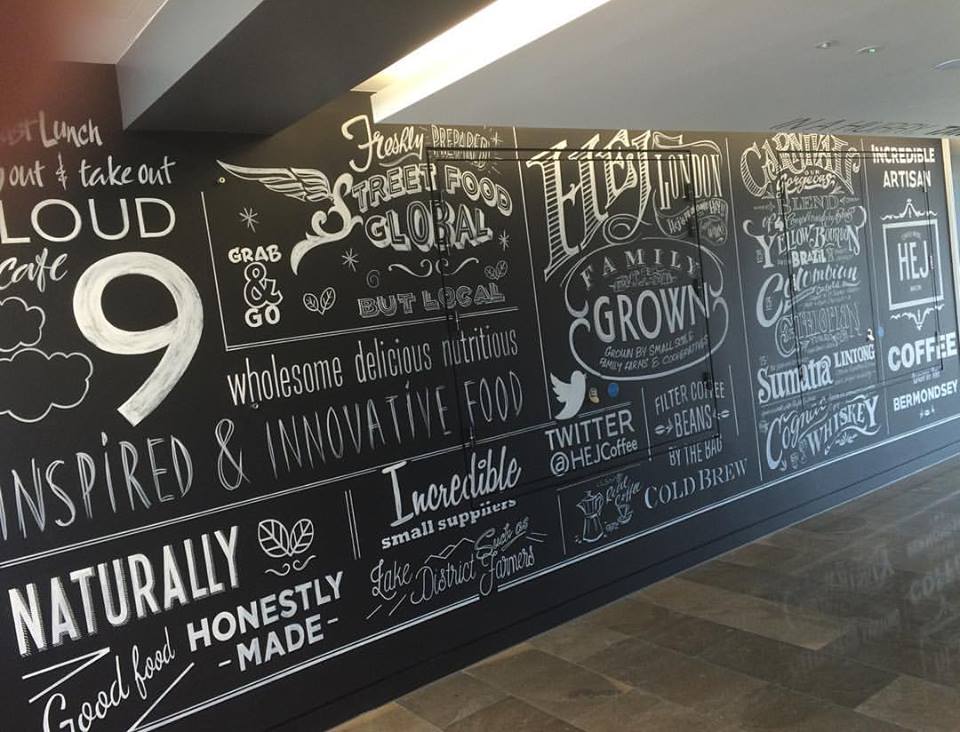 Lunch
out & take out
LOUD
cafe
9
Freshly PREPARED
STREET FOOD
GLOBAL
GRAB
&
GO
BUT LOCAL
wholesome delicious nutritious
INSPIRED & INNOVATIVE FOOD
NATURALLY
Good food
HONESTLY
-MADE-
Incredible
small suppliers
Lake District Such as Farmers
HEJ LONDON
FAMILY
GROWN
GROWN BY SMALLSCALE
FAMILY FARMS & COOPERATIVES
TWITTER
@HEJCoffee
FILTER COFFEE
BEANS
BY THE BAG
COLD BREW
CARNIVAL
OUR
Gorgeous
BLEND
YELLOW-BOURBON
BRAZIL
Colombian
ETHIOPIAN
Sumatra LINTONG
Cognac
WHISKEY
IN A HURRY
INCREDIBLE
ARTISAN
HEJ
COFFEE
BERMONDSEY